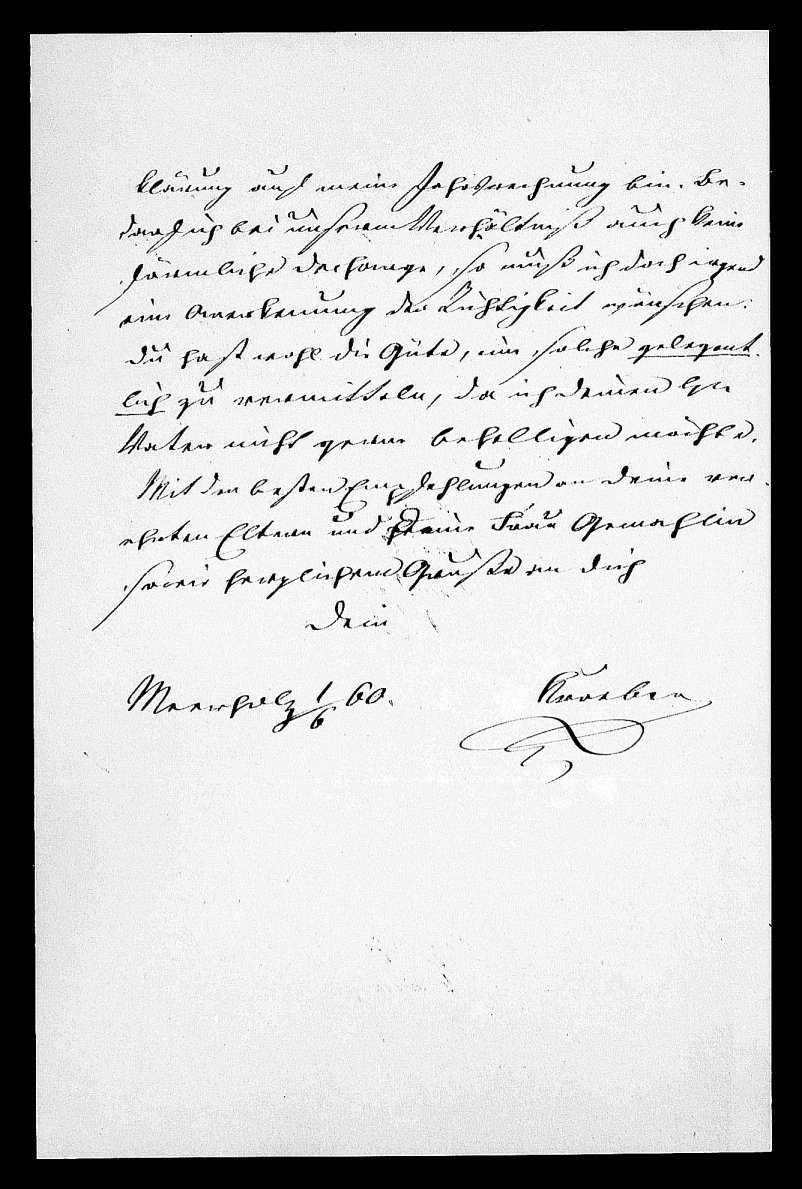 klärung auf meine Jahresrechnung bin. Be-
darf ich bei unserem Verhältniß auch keine
förmliche decharge, so muß ich doch irgend
eine Anerkennung der Richtigkeit wünschen.
Du hast wohl die Güte, mir solche gelegent-
lich zu vermitteln, da ich deinen Hrn
Vater nicht gerne behelligen möchte.
Mit den besten Empfehlungen an deine ver-
ehrten Eltern und deine Frau Gemahlin
sowie herzlichem Gruße an dich
Dein
Meerholz 1/6 60. Kroeber